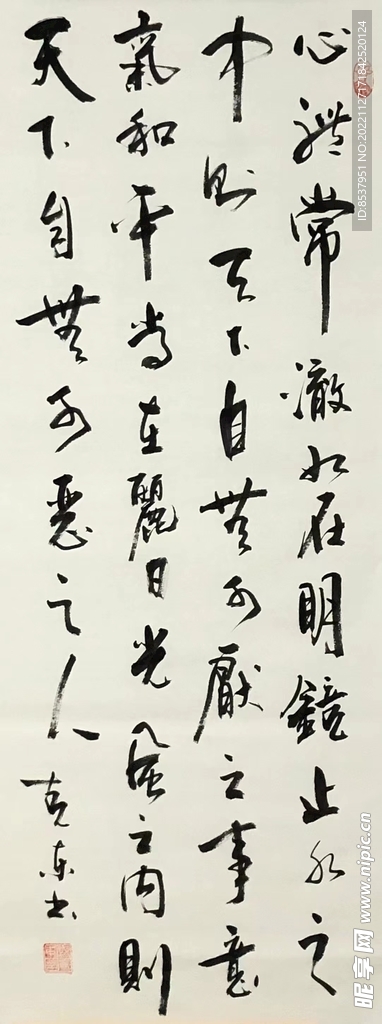 心體常澈如在明鏡止水之
中則天下自無可厭之事意
氣和平常在麗日光風之内則
天下自無可惡之人
克東书
ID:8537951 NO:20221127171842520124
昵享网 www.nipic.cn